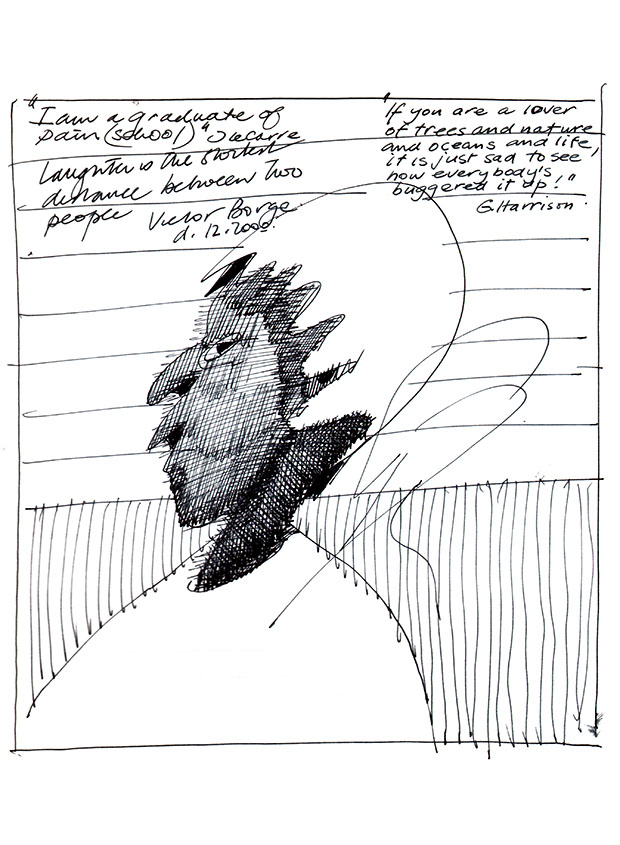 "I am a graduate of
Pain (school)" Lecarre
Laughter is the shortest
distance between two
people
Victor Borge
d. 12.2000.
"If you are a lover
of trees and nature
and oceans and life,
it is just sad to see
how everybody's
buggered it up!"
G. Harrison.